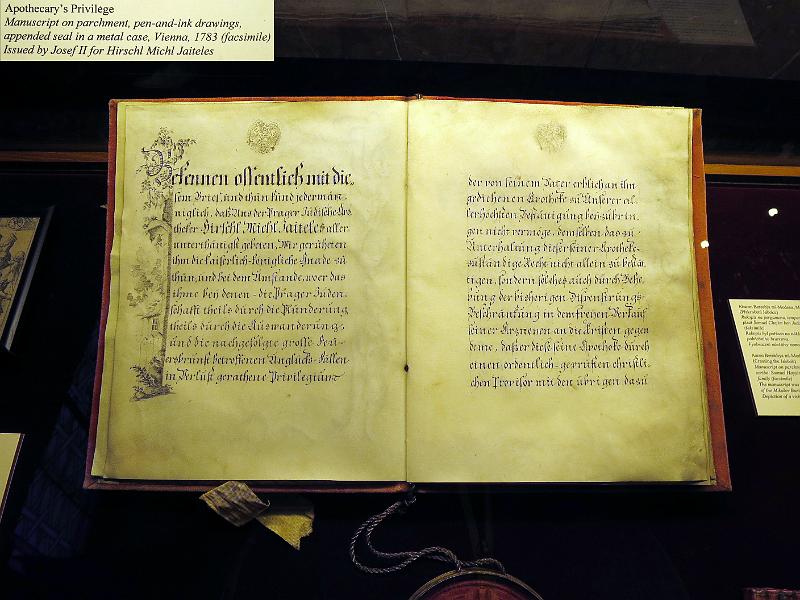 Apothecary's Privilege
Manuscript on parchment, pen-and-ink drawings,
appended seal in a metal case, Vienna, 1783 (facsimile)
Issued by Josef II for Hirschl Michl Jaiteles
Bekennen offentlich mit die-
sem Brief, und thun kund jedermän-
niglich, daß Uns der Prager Jüdische Apo-
theker Hirschl Michl Jaiteles aller
unterthänigst gebeten, Wir geruheten
ihm die kaiserlich-königliche Gnade zu
thun, und bei dem Umstande, wo er das
ihme bei denen die Prager Juden-
schaft theils durch die Plünderung
theils durch die Auswanderung,
und die nachgefolgte grosse Feu-
ersbrunst betroffenen Unglücks-Fällen
in Verlust gerathene Privilegium
der von seinem Vater erblich an ihn
gediehenen Apotheke zu Unserer al-
lerhöchsten Bestättigung beizubrin-
gen nicht vermöge, demselben das zu
Unterhaltung dieser seiner Apotheke
zuständige Recht nicht allein zu bestät-
tigen, sondern solches auch durch Behe-
bung der bisherigen Dispensirungs-
Beschränkung in dem freien Verkauf
seiner Arzneien an die Kristen gegen
deme, daß er diese seine Apotheke durch
einen ordentlich-geprüften christli-
chen Provisor mit den übrigen dazu